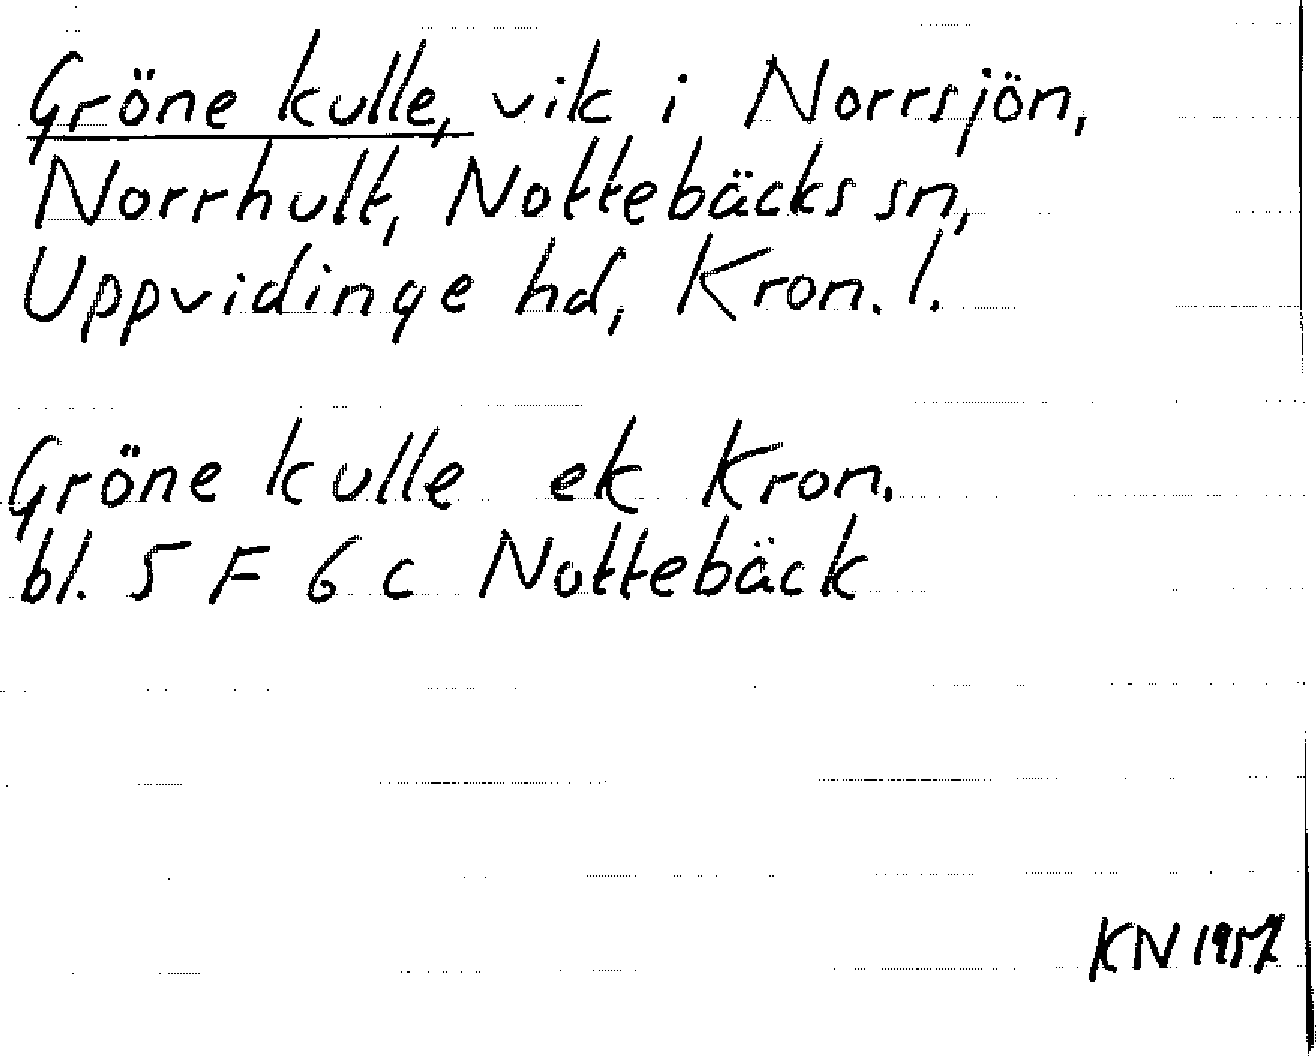 Gröne kulle, vik i Norrsjön,
Norrhult, Nottebäcks sn,
Uppvidinge hd, Kron. l.
Gröne kulle ek Kron.
bl. 5 F 6 c Nottebäck
KN 1957